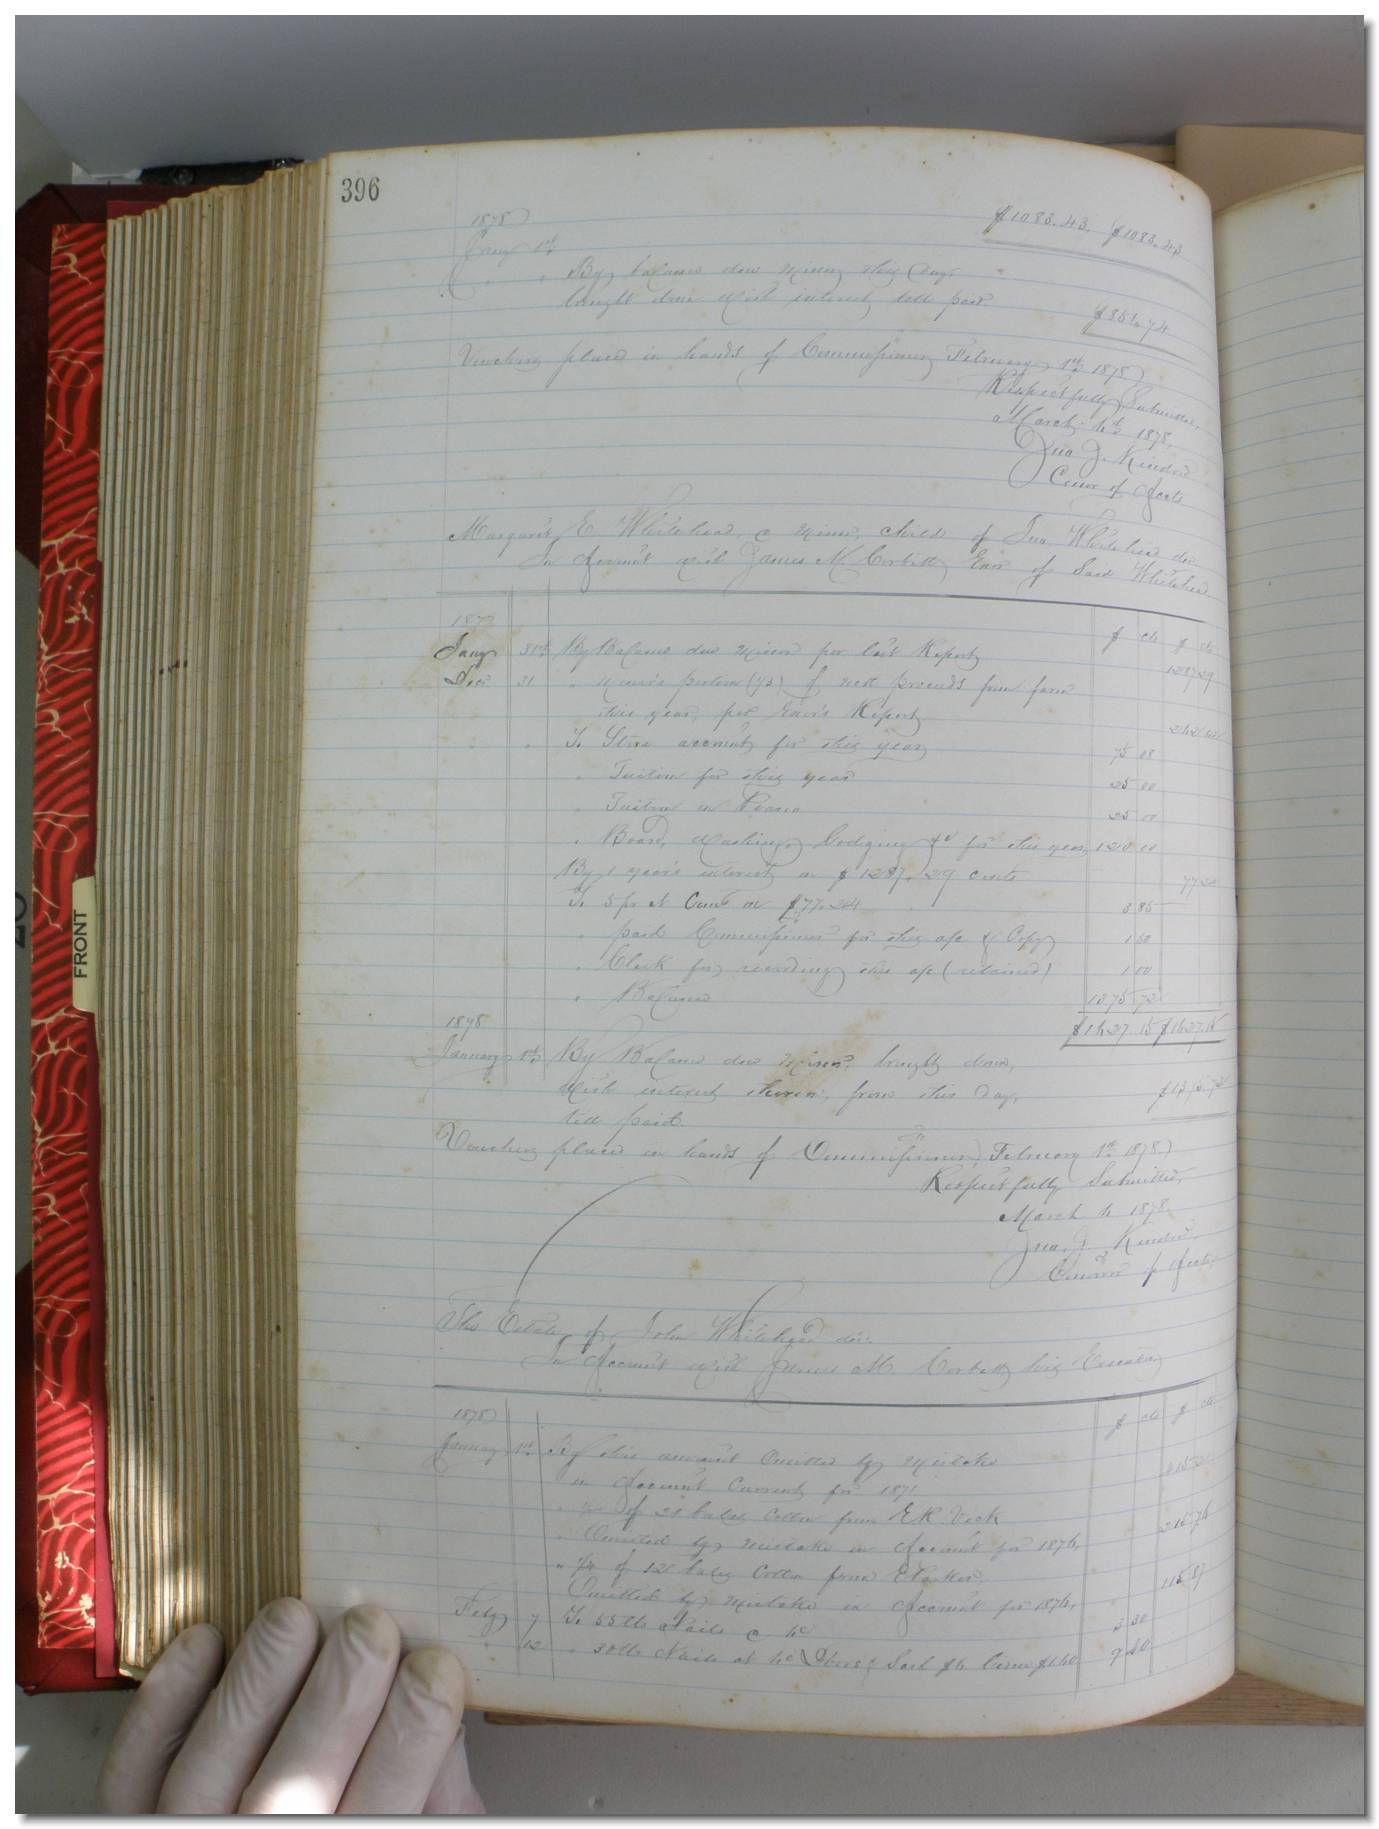 396
1878
$1083.43. $1083.43
Jany 1st
" " By balance due Minor this day
brought down with interest till paid.
$851.74
Vouchers placed in hands of Commissioner February 1st 1878
Respectfully Submitted,
March 4th 1878,
Jno. J. Kindred
Comr of Accts
Margaret E. Whitehead, a minor, child of Jno. Whitehead dec
In Account with James M. Corbitt, Exor of Said Whitehead
$ cts $ cts
1877
Jany 31st By Balance due Minor per last Report 1287 29
Dec 31 " Minor's portion (1/3) of nett proceeds from farm
this year, per Exor's Report
" To Store account for this year 75 08
" Tuition for this year 25 00
" Tuition on Piano 25 00
" Board, Washing, Lodging &c for this year 120 00
By 1 year's interest on $1287.29 cents 77 24
To 5 pr ct Coms on $77.24 3 85
" paid Commissioner for this a/c & Copy 1 50
" Clerk for recording this a/c (retained) 1 00
" Balance 1375 72
$1427.15 $1427.15
1878
January 1st By Balance due Minor, brought down,
with interest thereon, from this day,
till paid. $1375 72
Vouchers placed in hands of Commissioner, February 1st 1878
Respectfully Submitted,
March 4 1878
Jno. J. Kindred,
Commr of Accts.
The Estate of John Whitehead dec.
In Account with James M. Corbitt, his Executor
$ cts $ cts
1878
January 1st By this amount Omitted by mistake
in Account Current for 1871
" of 21 bales Cotton from E.R. Vick
Omitted by mistake in Account for 1874,
" 1/4 of 12 bales Cotton from
Omitted by mistake in Account for 1874,
Feby 7 To 55 lbs Nails @ 3 30
" 12 " 30 lbs Nails at Doors & Sash 9 40
FRONT